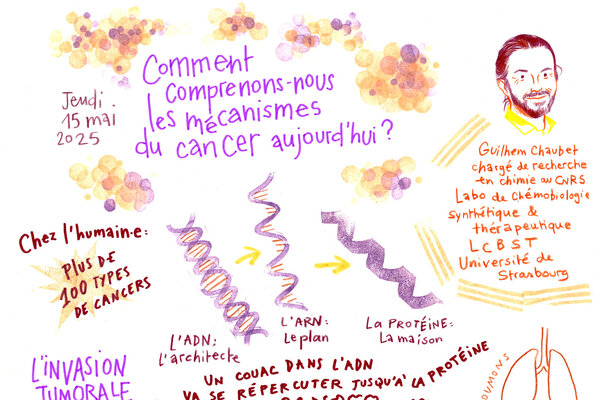 Jeudi
15 mai
2025
Comment
comprenons-nous
les mécanismes
du cancer aujourd'hui ?
Guilhem Chaubet
chargé de recherche
en chimie au CNRS
Labo de Chémobiologie
synthétique &
thérapeutique
LCBST
Université de
Strasbourg
Chez l'humain·e :
PLUS DE
100 TYPES
DE CANCERS
L'ADN :
l'architecte
L'ARN :
Le plan
La PROTÉINE :
La maison
UN COUAC DANS L'ADN
VA SE RÉPERCUTER JUSQU'À LA PROTÉINE
L'INVASION
TUMORALE
POUMONS